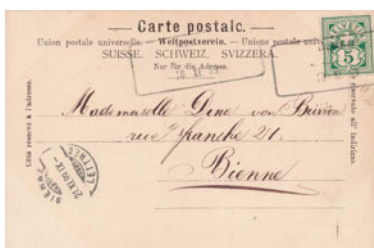 Carte postale.
Union postale universelle. — Weltpostverein. — Unione postale
SUISSE. SCHWEIZ. SVIZZERA.
Nur für die Adresse.
Côté réservé à l'adresse.
HELVETIA
5
Mademoiselle Dina von Büren
rue franche 21.
Bienne
LETTRES